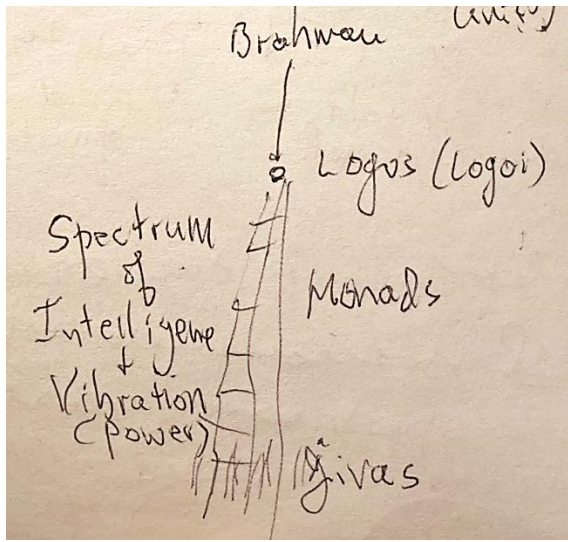 Brahman
Logos (Logoi)
Spectrum
of
Intelligene
+
Vibration
(power)
Monads
Jivas